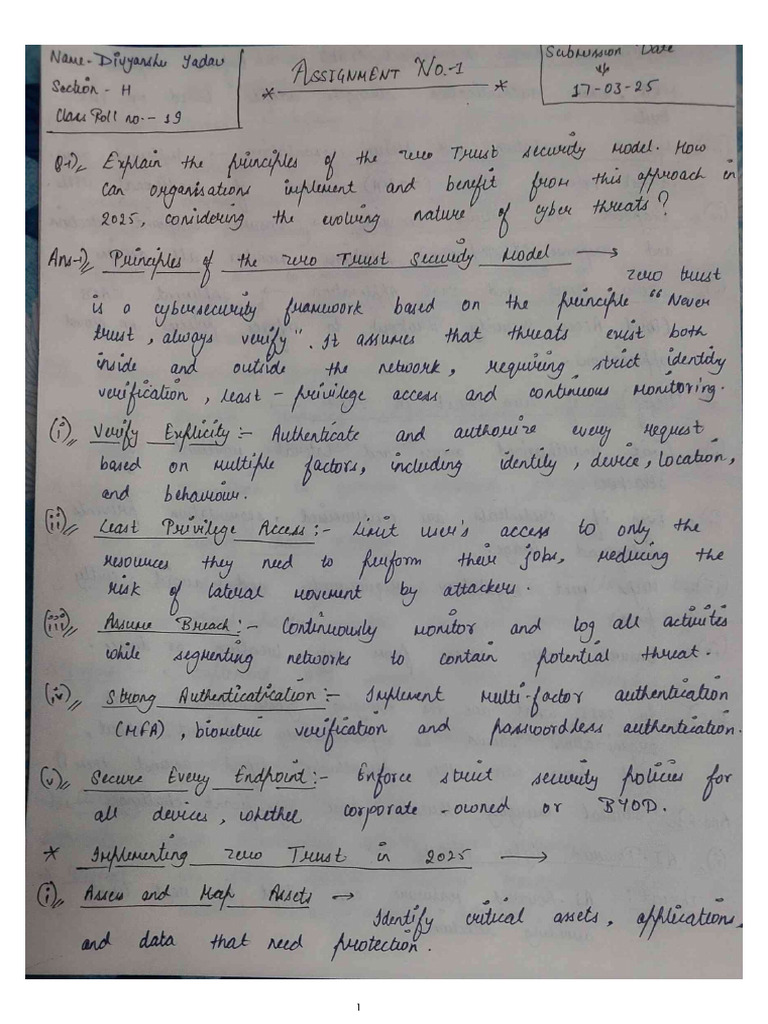 Name - Divyanshu Yadav
Section - H
Class Roll no. - 19
ASSIGNMENT No.-1
Submission Date
17-03-25
Q-i) Explain the principles of the zero Trust security Model. How
can organisations implement and benefit from this approach in
2025, considering the evolving nature of cyber threats?
Ans-i) Principles of the zero Trust Security Model →
zero trust
is a cybersecurity framework based on the principle "Never
trust, always verify". It assumes that threats exist both
inside and outside the network, requiring strict identity
verification, least-privilege access and continuous monitoring.
(i) Verify Explicity:- Authenticate and authorize every request
based on multiple factors, including identity, device, location,
and behaviour.
(ii) Least Privilege Access:- Limit user's access to only the
resources they need to perform their jobs, reducing the
risk of lateral movement by attackers.
(iii) Assume Breach:- Continuously monitor and log all activities
while segmenting networks to contain potential threat.
(iv) Strong Authenticatication:- Implement multi-factor authentication
(MFA), biometric verification and passwordless authentication.
(v) Secure Every Endpoint:- Enforce strict security policies for
all devices, whether corporate-owned or BYOD.
* Implementing zero Trust in 2025 →
(i) Assess and Map Assets →
Identify critical assets, applications,
and data that need protection.
1